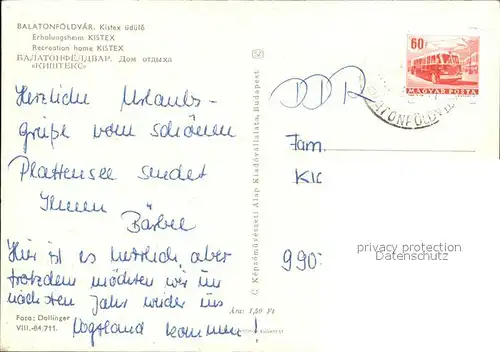 BALATONFÖLDVÁR. Kistex üdülő
Erholungsheim KISTEX
Recreation home KISTEX
БАЛАТОНФЁЛДВАР. Дом отдыха
«КИШТЕКС»
Herzliche Urlaubs-
grüße vom schönen
Plattensee sendet
Ihnen
Bärbel
Hier ist es herrlich aber
trotzdem möchten wir im
nächsten Jahr wieder ins
Vogtland kommen!
Foto: Dollinger
VIII.-64.711.
Ára: 1,50 Ft
C Képzőművészeti Alap Kiadóvállalata, Budapest
DDR
60f
MAGYAR POSTA
BALATONFÖLDVÁR
Fam.
990
privacy protection
Datenschutz